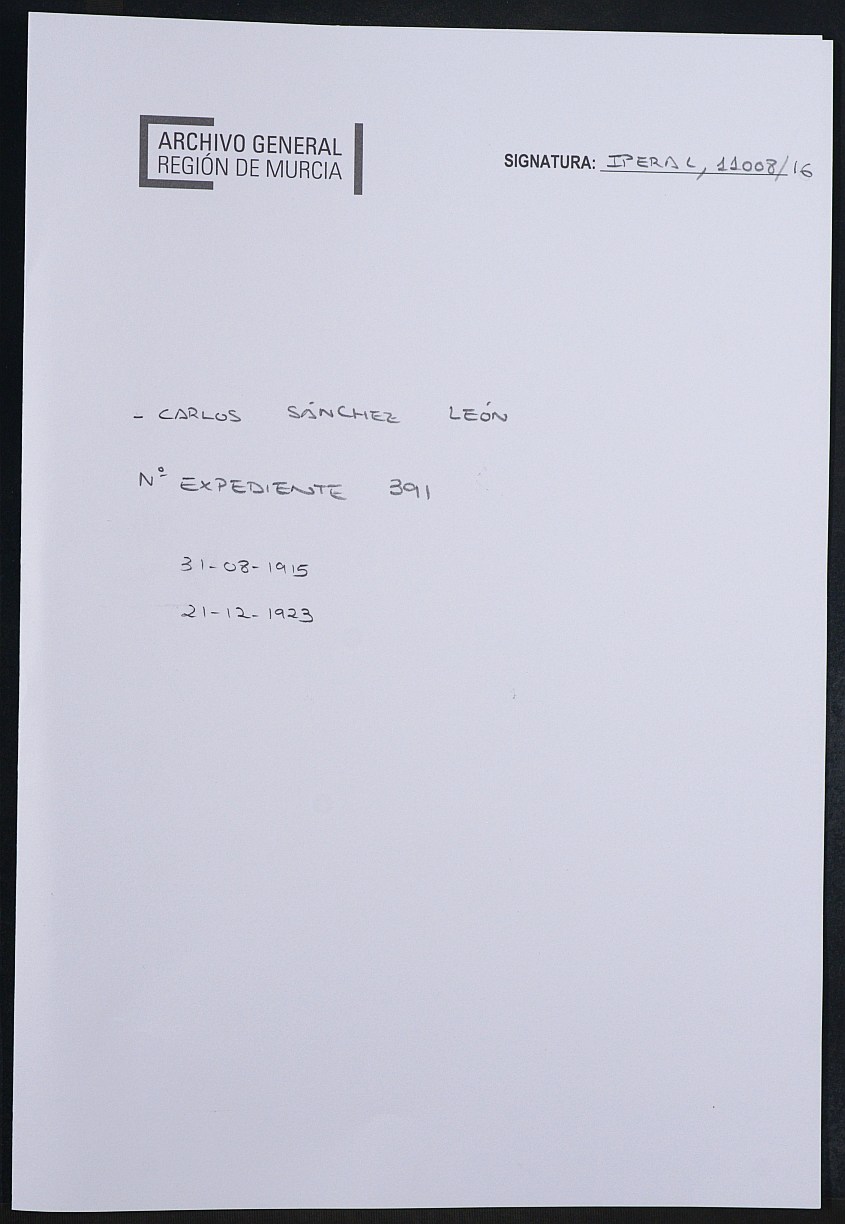 ARCHIVO GENERAL
REGIÓN DE MURCIA
SIGNATURA: IPERAL, 11008/16
- CARLOS SÁNCHEZ LEÓN
Nº EXPEDIENTE 391
31-08-1915
21-12-1923